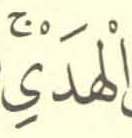 الْهَدْيِۚ